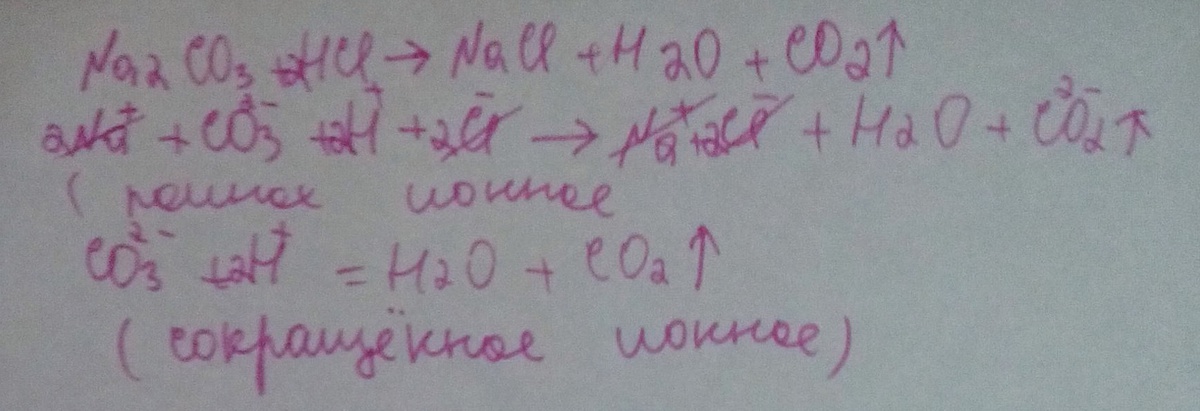 Na2CO3 + 2HCl → NaCl + H2O + CO2↑
2Na⁺ + CO3²⁻ + 2H⁺ + 2Cl⁻ → Na⁺ + 2Cl⁻ + H2O + CO2²⁻↑
( полное ионное
CO3²⁻ + 2H⁺ = H2O + CO2↑
(сокращённое ионное)